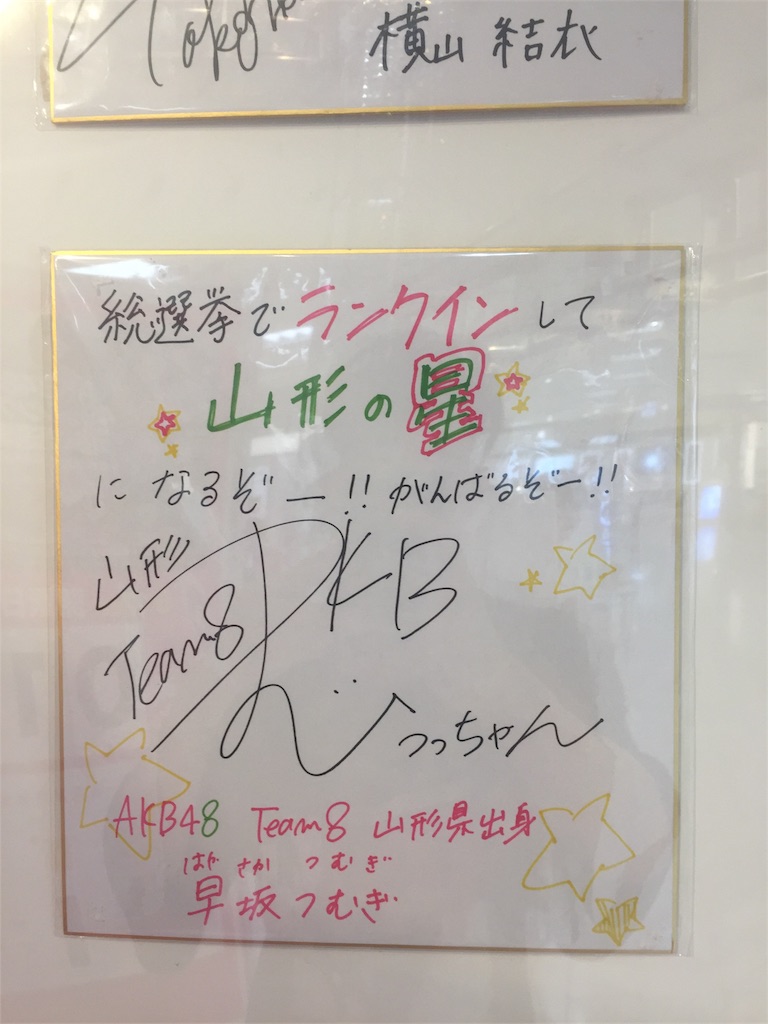 横山 結衣
総選挙でランクインして
山形の星
になるぞー!!がんばるぞー!!
山形
Team8
AKB
つっちゃん
AKB48 Team8 山形県出身
はやさか つむぎ
早坂つむぎ